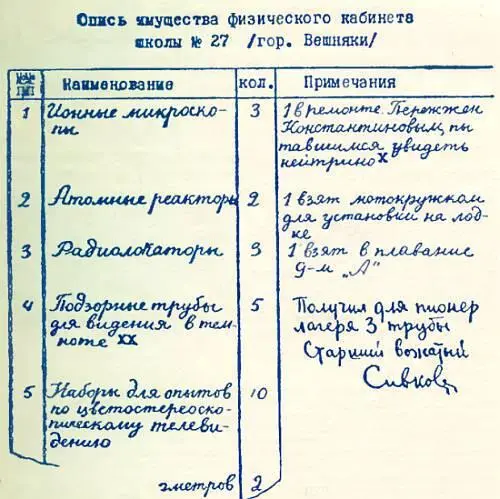 Опись имущества физического кабинета
школы № 27 /гор. Вешняки/
№№ пп Наименование кол. Примечания
1 Ионные микроско-
пы
3
1 в ремонте. Пережжен
Константиновым, пы
тавшимся увидеть
нейтрино x
2 Атомные реакторы 2
1 взят мотокружком
для установки на лод-
ке
3 Радиолокаторы 3
1 взят в плавание
9-м „А"
4 Подзорные трубы
для видения в тем-
ноте xx
5
Получил для пионер
лагеря 3 трубы
Старший вожатый
Сивков
5 Наборы для опытов
по цветостереоско-
пическому телеви-
дению
10
метров 2